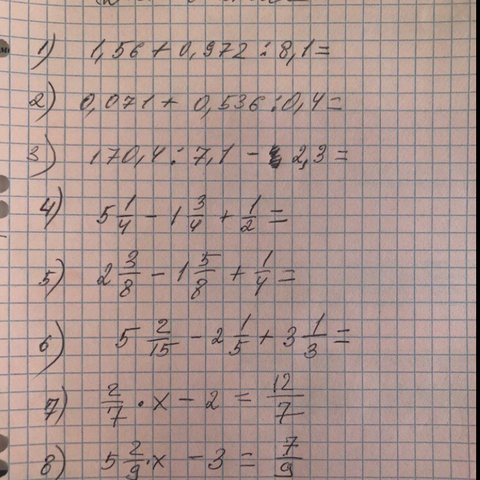 1) 1,56 + 0,972 : 8,1 =
2) 0,071 + 0,536 : 0,4 =
3) 170,4 : 7,1 - 2,3 =
4) 5 1/4 - 1 3/4 + 1/2 =
5) 2 3/8 - 1 5/8 + 1/4 =
6) 5 2/15 - 2 1/5 + 3 1/3 =
7) 2/7 · x - 2 = 12/7
8) 5 2/9 · x - 3 = 7/9